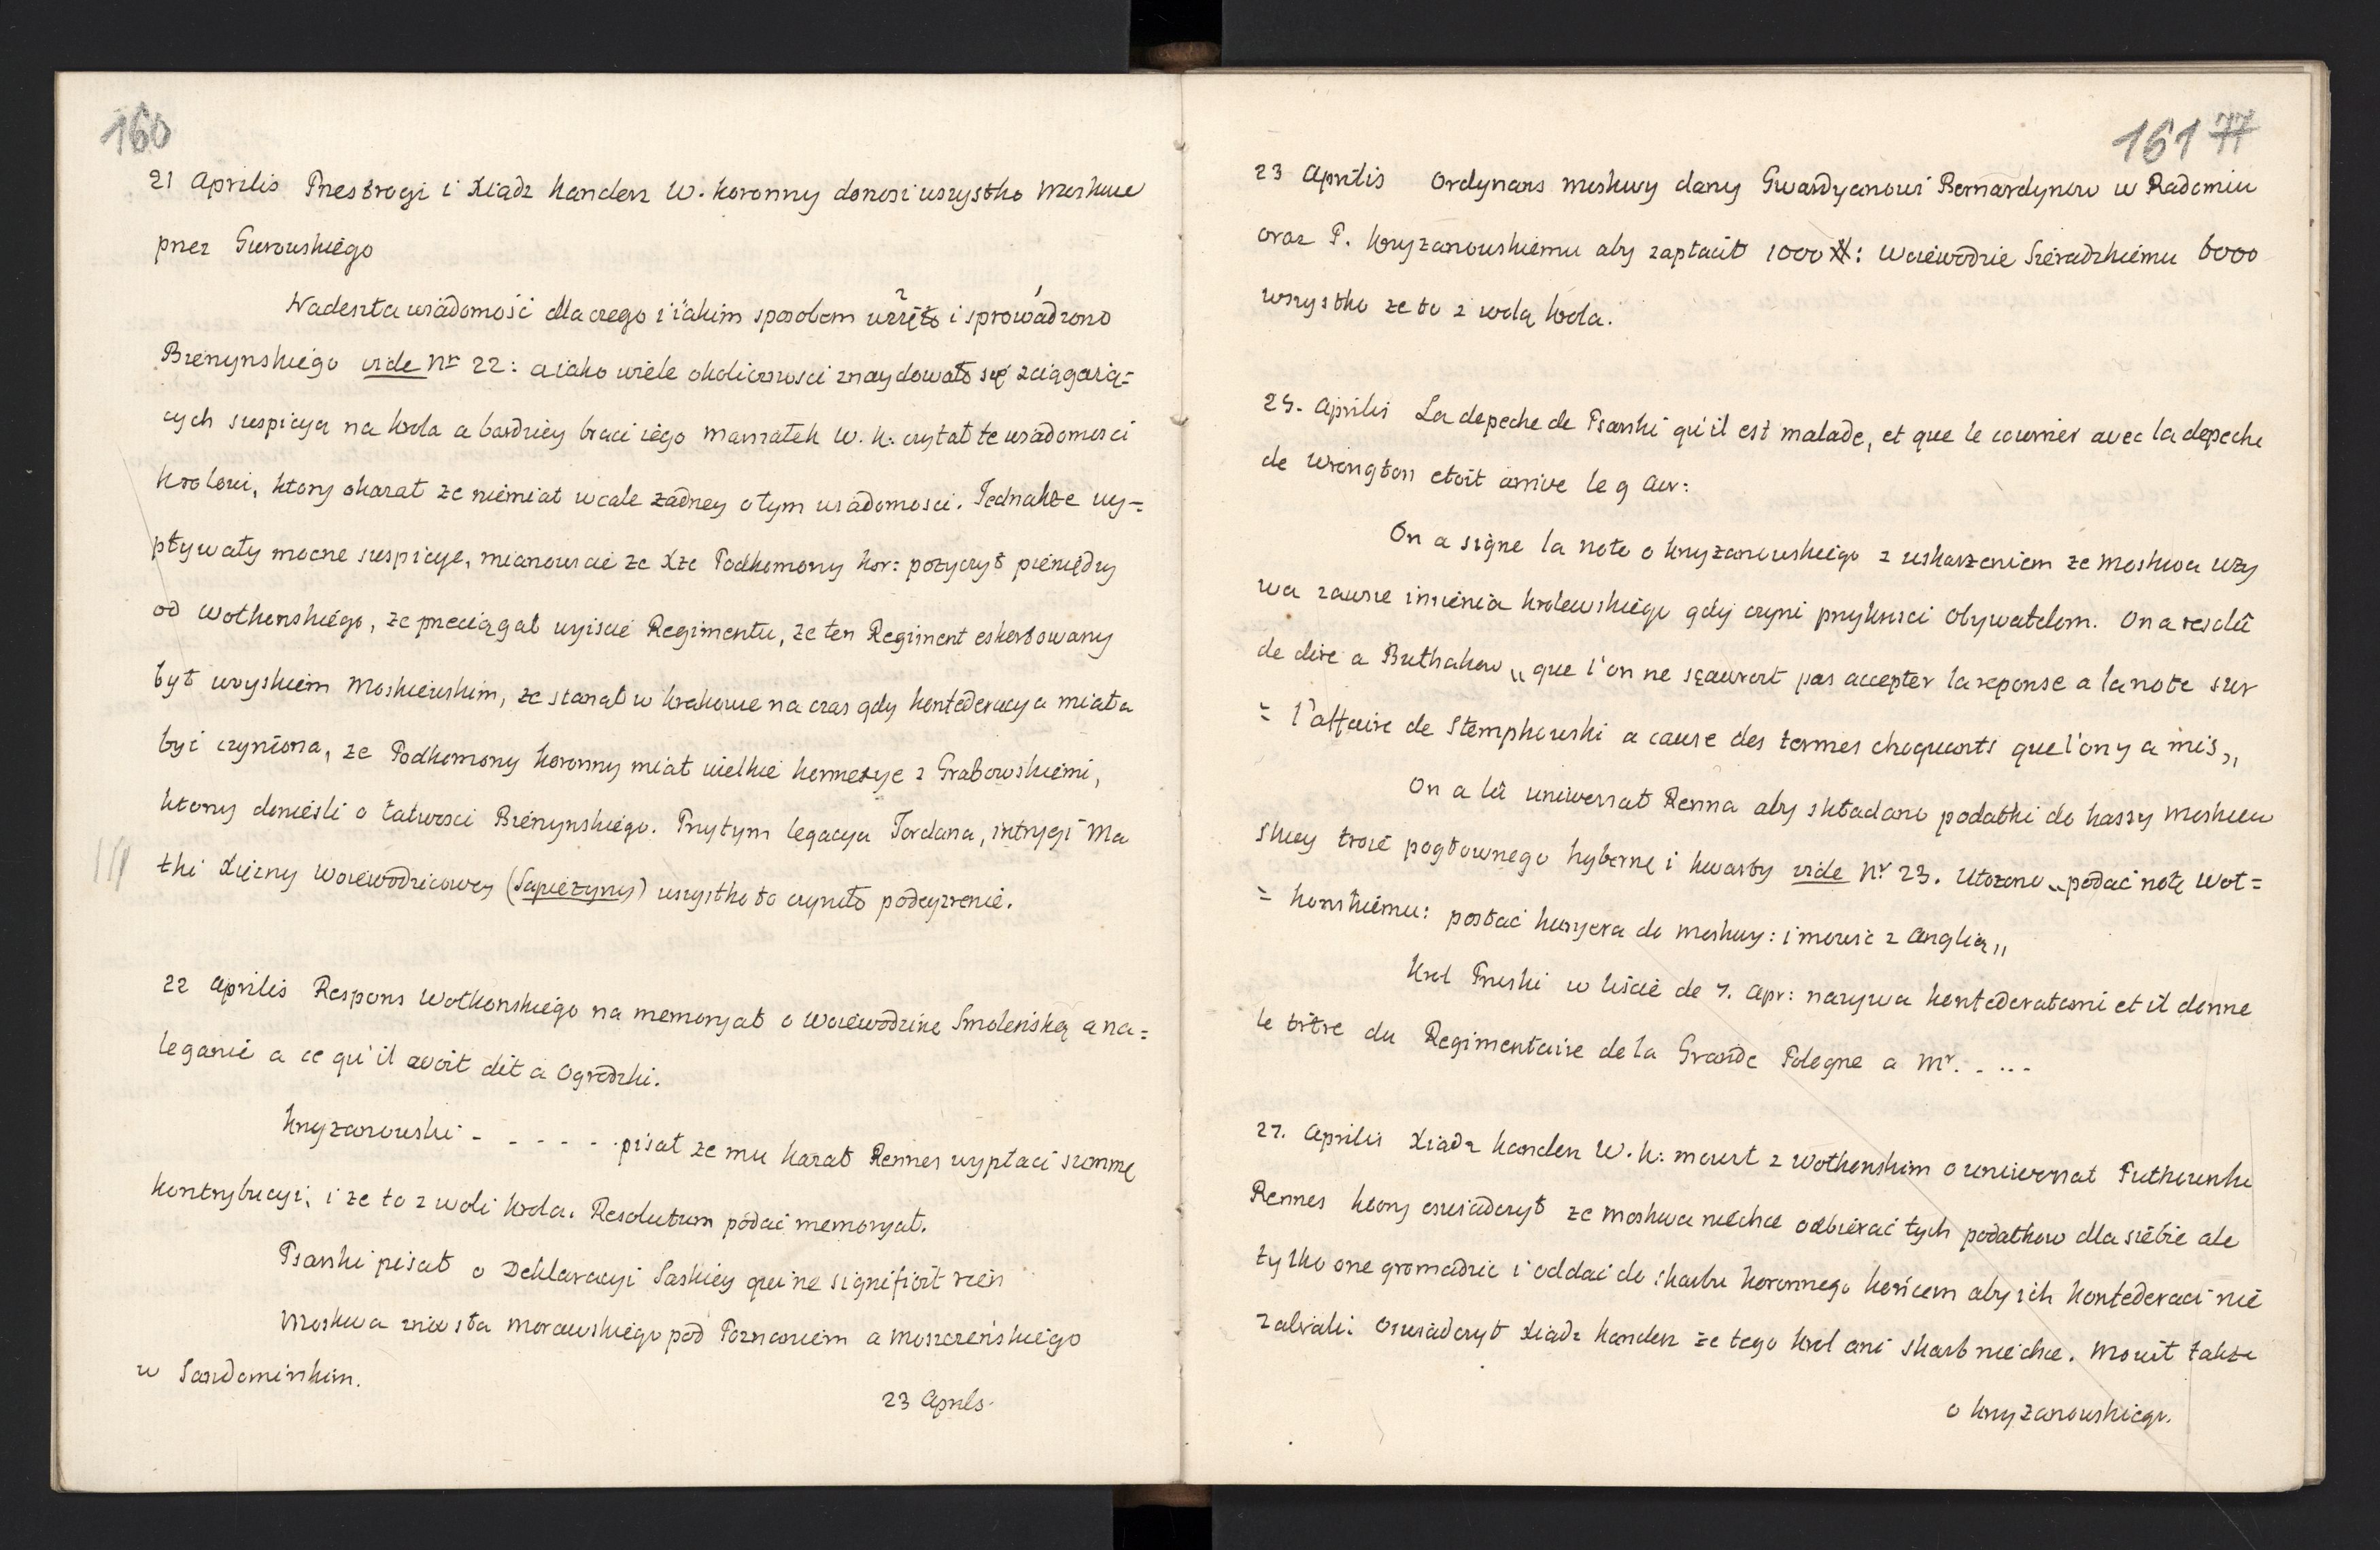 160
21 Aprilis Przestrogi i Xiądz Kanclerz W. Koronny donosi wszystko Moskwie
przez Gurowskiego
Nadeszła wiadomość dla czego i iakim sposobem wzięto i sprowadzono
Bierzynskiego vide Nr 22: a iako wiele okoliczności znaydowało się zciągaią=
cych suspicya na Krola a bardziey braci iego Marszałek W. K. czytał te wiadomosci
Krolowi, ktory okazał ze niemiał wcale żadney o tym wiadomosci. Jednakże wy=
pływały mocne suspicye, mianowicie że Xże Podkomorzy Kor: pożyczył pieniędzy
od Wołkonskiego, że przeciągał wyiście Regimentu, że ten Regiment eskortowany
był woyskiem Moskiewskim, że stanął w Krakowie na czas gdy konfederacya miała
być czyniona, że Podkomorzy Koronny miał wielkie konnexye z Grabowskiemi,
ktorzy donieśli o łatwosci Bierzynskiego. Przytym legacya Jordana, intrygi Ma
tki Xiężny Woiewodzicowey (Sapieżyny) wszystko to czyniło podeyzrenie.
22 Aprilis Respons Wołkonskiego na memoryał o Woiewodzinę Smoleńską a na=
leganie a ce qu'il avoit dit a Ogrodzki.
Kryżanowski - - - - - - pisał że mu kazał Rennes wypłaci summę
kontrybucyi, i że to z woli Krola. Resolutum podać memoryał.
Psarski pisał o Deklaracyi Saskiey qui ne signifioit rien
Moskwa zniosła Morawskiego pod Poznaniem a Moszczeńskiego
w Sandomirskim.
23 Aprils
161 77
23 Aprilis Ordynans Moskwy dany Gwardyanowi Bernardynow w Radomiu
oraz P. Kryzanowskiemu aby zapłacił 1000 #: Woiewodzie Sieradzkiemu 6000
wszystko że to z wolą Krola.
25. Aprilis La depeche de Psarski qu'il est malade, et que le courrier avec la depeche
de Wrongton etoit arrive le 9 Avr:
On a signe la note o Kryżanowskiego z uskarżeniem że Moskwa uży
wa zawsze imienia Krolewskiego gdy czyni przykrosci Obywatelom. On a resolû
de dire a Buthakow „que l'on ne sçauroit pas accepter la reponse a la note sur
= l'affaire de Stempkowski a cause des termes choquants que l'on y a mis„
On a lû uniwersał Renna aby składano podatki do kassy Moskiew
skiey troie pogłownego hybernę i kwarty vide Nr 23. Ułożono „podać notę Woł=
= konskiemu: posłać kuryera do Moskwy: i mowić z Anglią„
Krol Pruski w liście de 7. Apr: nazywa konfederatami et il donne
le titre du Regimentaire de la Grande Pologne a Mr. . ...
27. Aprilis Xiądz Kanclerz W. K: mowił z Wołkonskim o uniwersał Putkownka
Rennes ktory oswiadczył że Moskwa niechce odbierać tych podatkow dla siebie ale
tylko one gromadzić i oddać do skarbu Koronnego końcem aby ich konfederaci nie
zabrali: Oswiadczył Xiądz Kanclerz że tego Krol ani Skarb niechce. Mowił także
o Kryżanowskiego.